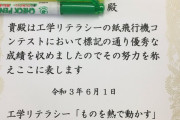 殿
貴殿は工学リテラシーの紙飛行機コ
ンテストにおいて標記の通り優秀な
成績を収めましたのでその努力を称
えここに表します
令和3年6月1日
工学リテラシー「ものを熱で動かす」